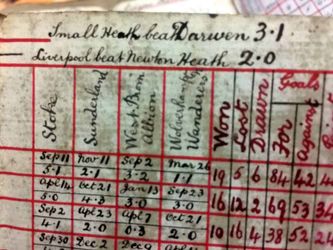 Small Heath beat Darwen 3.1
Liverpool beat Newton Heath 2.0
Stoke Sunderland West Brom Albion Wolverhampton Wanderers Won Lost Drawn Goals For Against
Sep 11 Nov 11 Sep 2 Mar 26
5.1 2.1 3.2 1.1 19 5 6 84 42
Apl 14 Oct 21 Jan 13 Sep 23
5.0 4.3 3.0 3.0 16 12 2 69 53
Sep 2 Apl 23 Apl 7 Oct 21
4.1 2.0 0.3 2.0 10 16 4 38 52
Sep 30 Dec 2 Dec 9